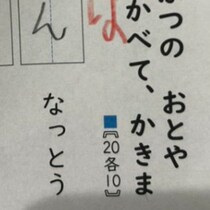 がつの　おとや
かべて、かきま
【20各10】
なっとう
ん